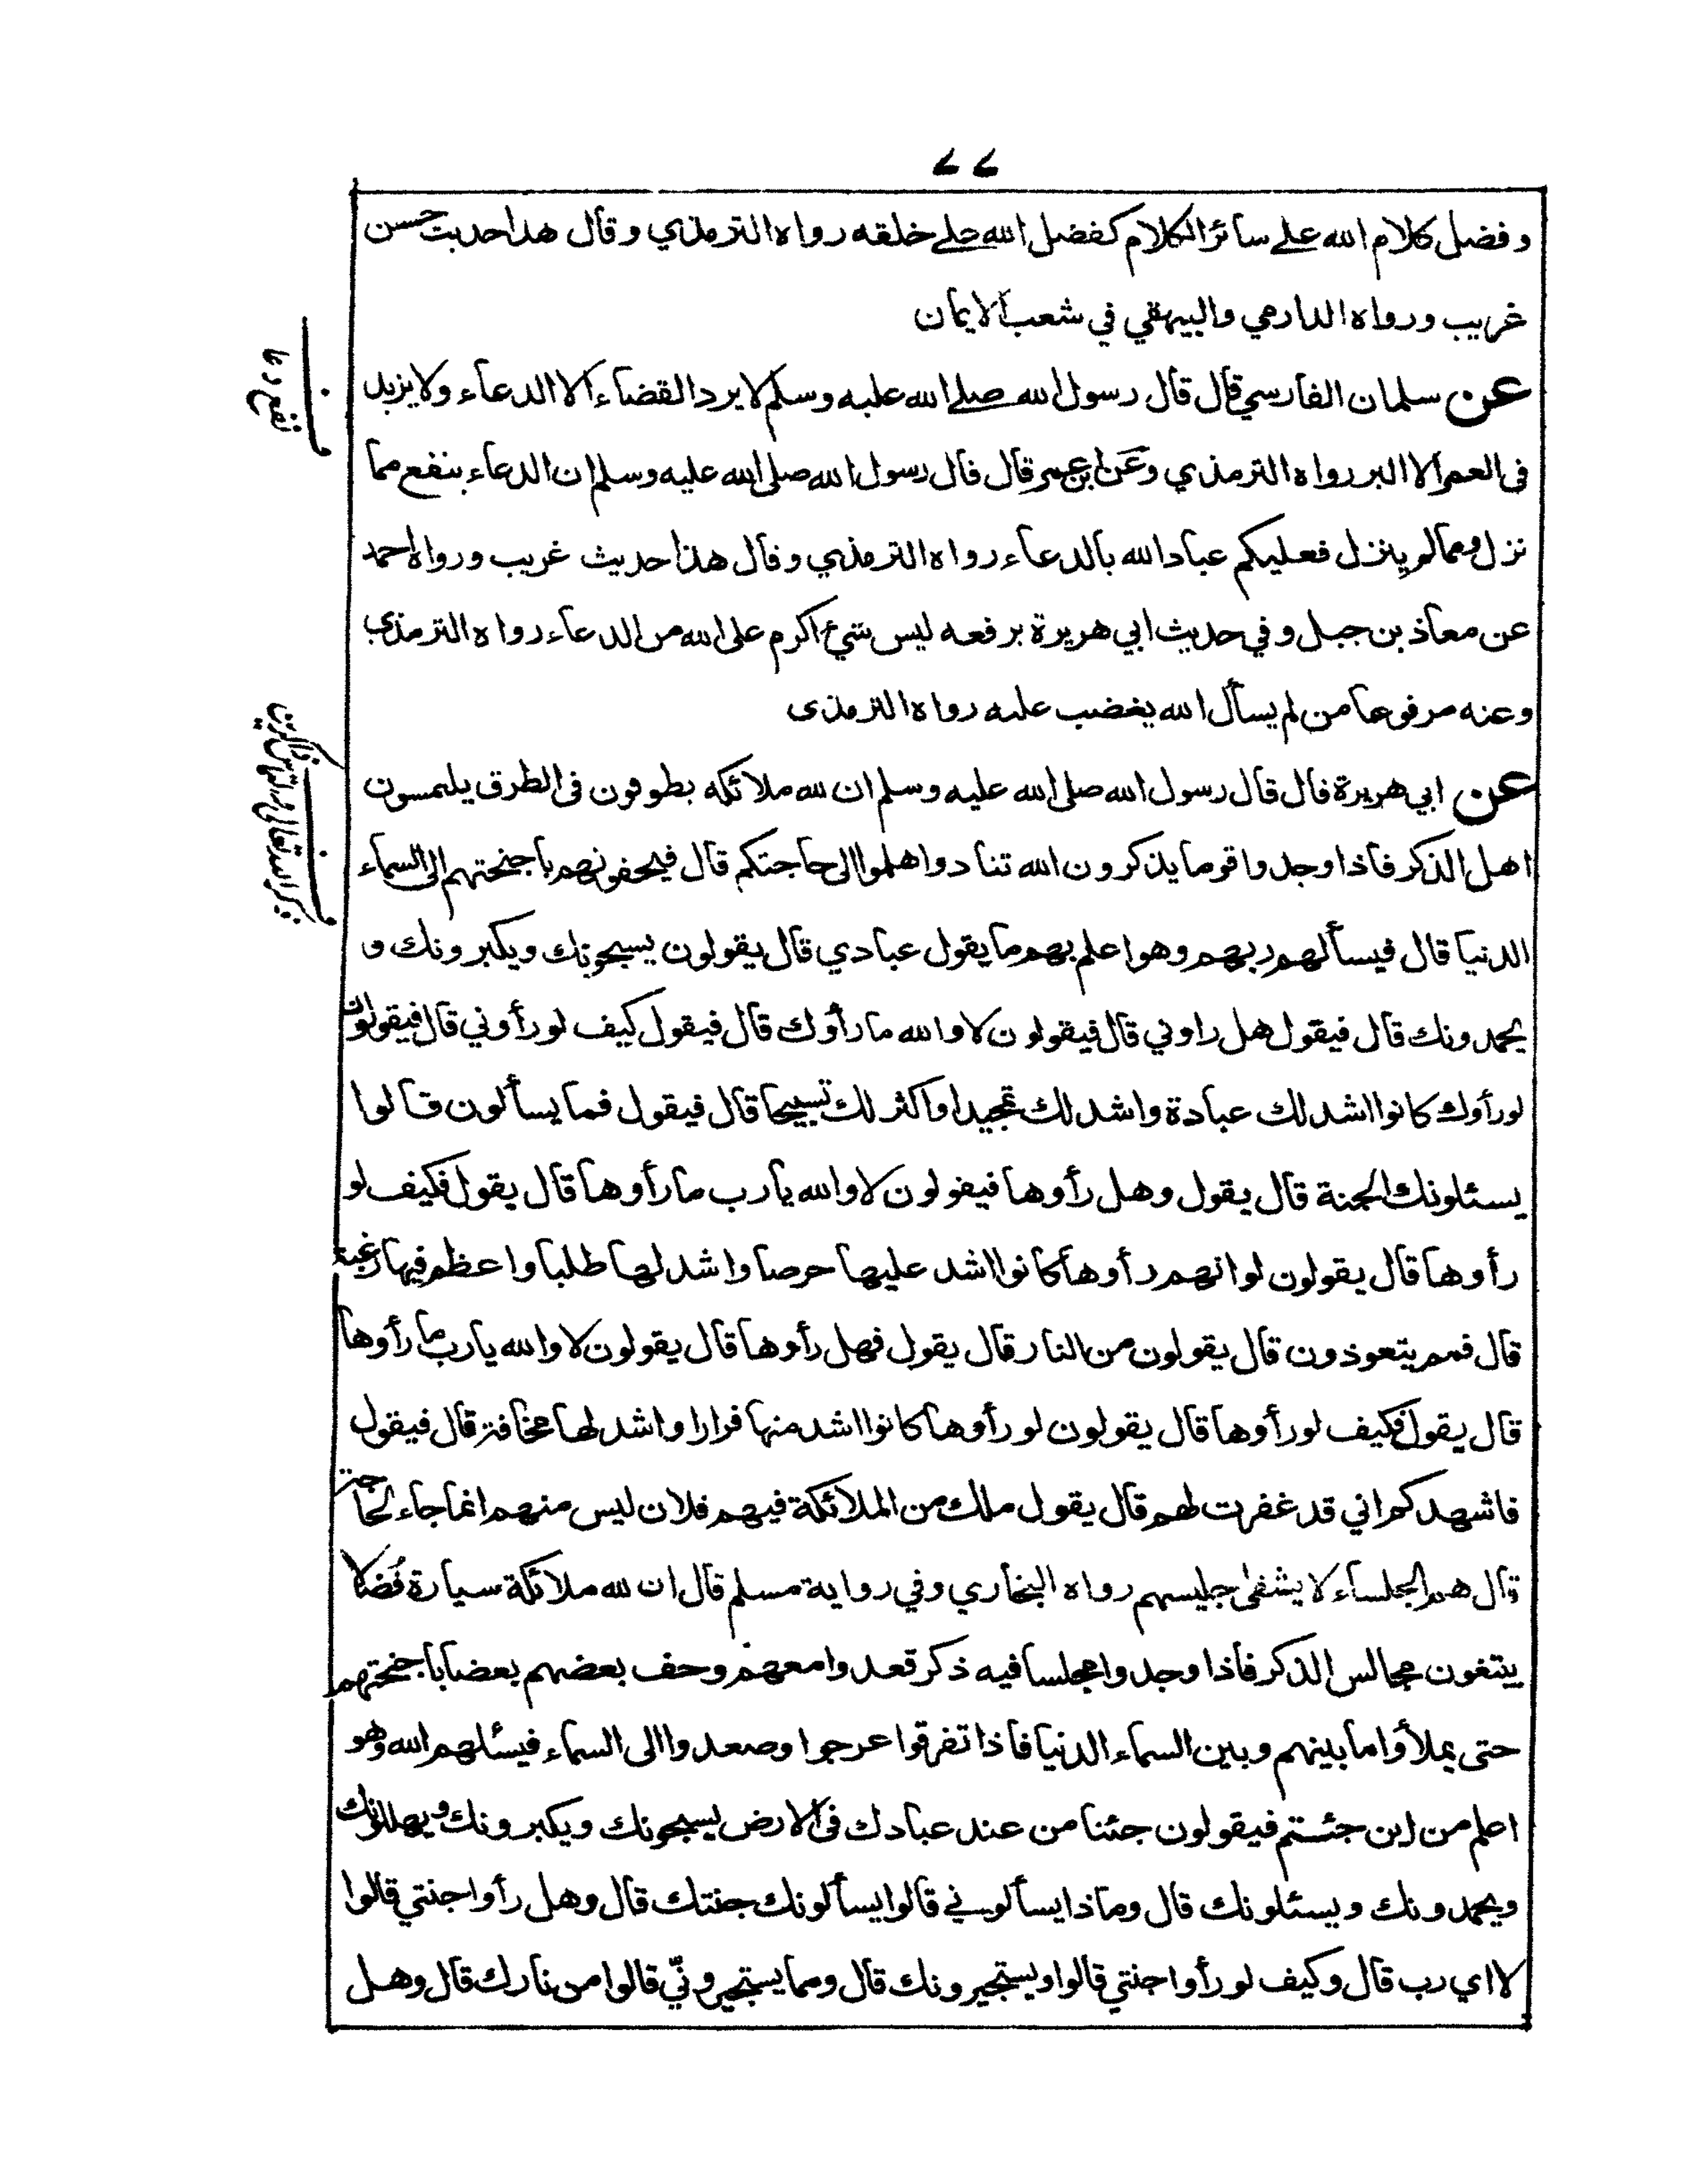 ٤٤
و فضل كلام الله على سائر الكلام كفضل الله على خلقه رواه الترمذي وقال هذا حديث حسن
غريب ورواه الدارمي والبيهقي في شعب الايمان
عن سلمان الفارسي قال قال رسول الله صلى الله عليه وسلم لا يرد القضاء الا الدعاء ولا يزيد
فى العمر الا البر رواه الترمذي وعن ابن عمر قال قال رسول الله صلى الله عليه وسلم ان الدعاء ينفع مما
نزل ومما لم ينزل فعليكم عباد الله بالدعاء رواه الترمذي وقال هذا حديث غريب ورواه احمد
عن معاذ بن جبل وفي حديث ابي هريرة يرفعه ليس شيء اكرم على الله من الدعاء رواه الترمذي
وعنه مرفوعا من لم يسأل الله يغضب عليه رواه الترمذى
عن ابي هريرة قال قال رسول الله صلى الله عليه وسلم ان لله ملائكه يطوفون فى الطرق يلتمسون
اهل الذكر فاذا وجدوا قوما يذكرون الله تنادوا هلموا الى حاجتكم قال فيحفونهم باجنحتهم الى السماء
الدنيا قال فيسألهم ربهم وهو اعلم بهم ما يقول عبادي قال يقولون يسبحونك ويكبرونك و
يحمدونك قال فيقول هل راوني قال فيقولون لا والله ما رأوك قال فيقول كيف لو رأوني قال فيقولون
لو رأوك كانوا اشد لك عبادة واشد لك تمجيدا واكثر لك تسبيحا قال فيقول فما يسألون قالوا
يسئلونك الجنة قال يقول وهل رأوها فيقولون لا والله يا رب ما رأوها قال يقول فكيف لو
رأوها قال يقولون لو انهم رأوها كانوا اشد عليها حرصا واشد لها طلبا واعظم فيها رغبة
قال فمم يتعوذون قال يقولون من النار قال يقول فهل رأوها قال يقولون لا والله يا رب ما رأوها
قال يقول فكيف لو رأوها قال يقولون لو رأوها كانوا اشد منها فرارا واشد لها مخافة قال فيقول
فاشهدكم اني قد غفرت لهم قال يقول ملك من الملائكة فيهم فلان ليس منهم انما جاء لحاجة
قال هم الجلساء لا يشقى جليسهم رواه البخاري وفي رواية مسلم قال ان لله ملائكة سيارة فُضلا
يبتغون مجالس الذكر فاذا وجدوا مجلسا فيه ذكر قعدوا معهم وحف بعضهم بعضا باجنحتهم
حتى يملأوا ما بينهم وبين السماء الدنيا فاذا تفرقوا عرجوا وصعدوا الى السماء فيسئلهم الله وهو
اعلم من اين جئتم فيقولون جئنا من عند عبادك فى الارض يسبحونك ويكبرونك ويهللونك
ويحمدونك ويسئلونك قال وماذا يسألوني قالوا يسألونك جنتك قال وهل رأوا جنتي قالوا
لا اي رب قال وكيف لو رأوا جنتي قالوا ويستجيرونك قال ومما يستجيرونّي قالوا من نارك قال وهل
ف نفع دعا